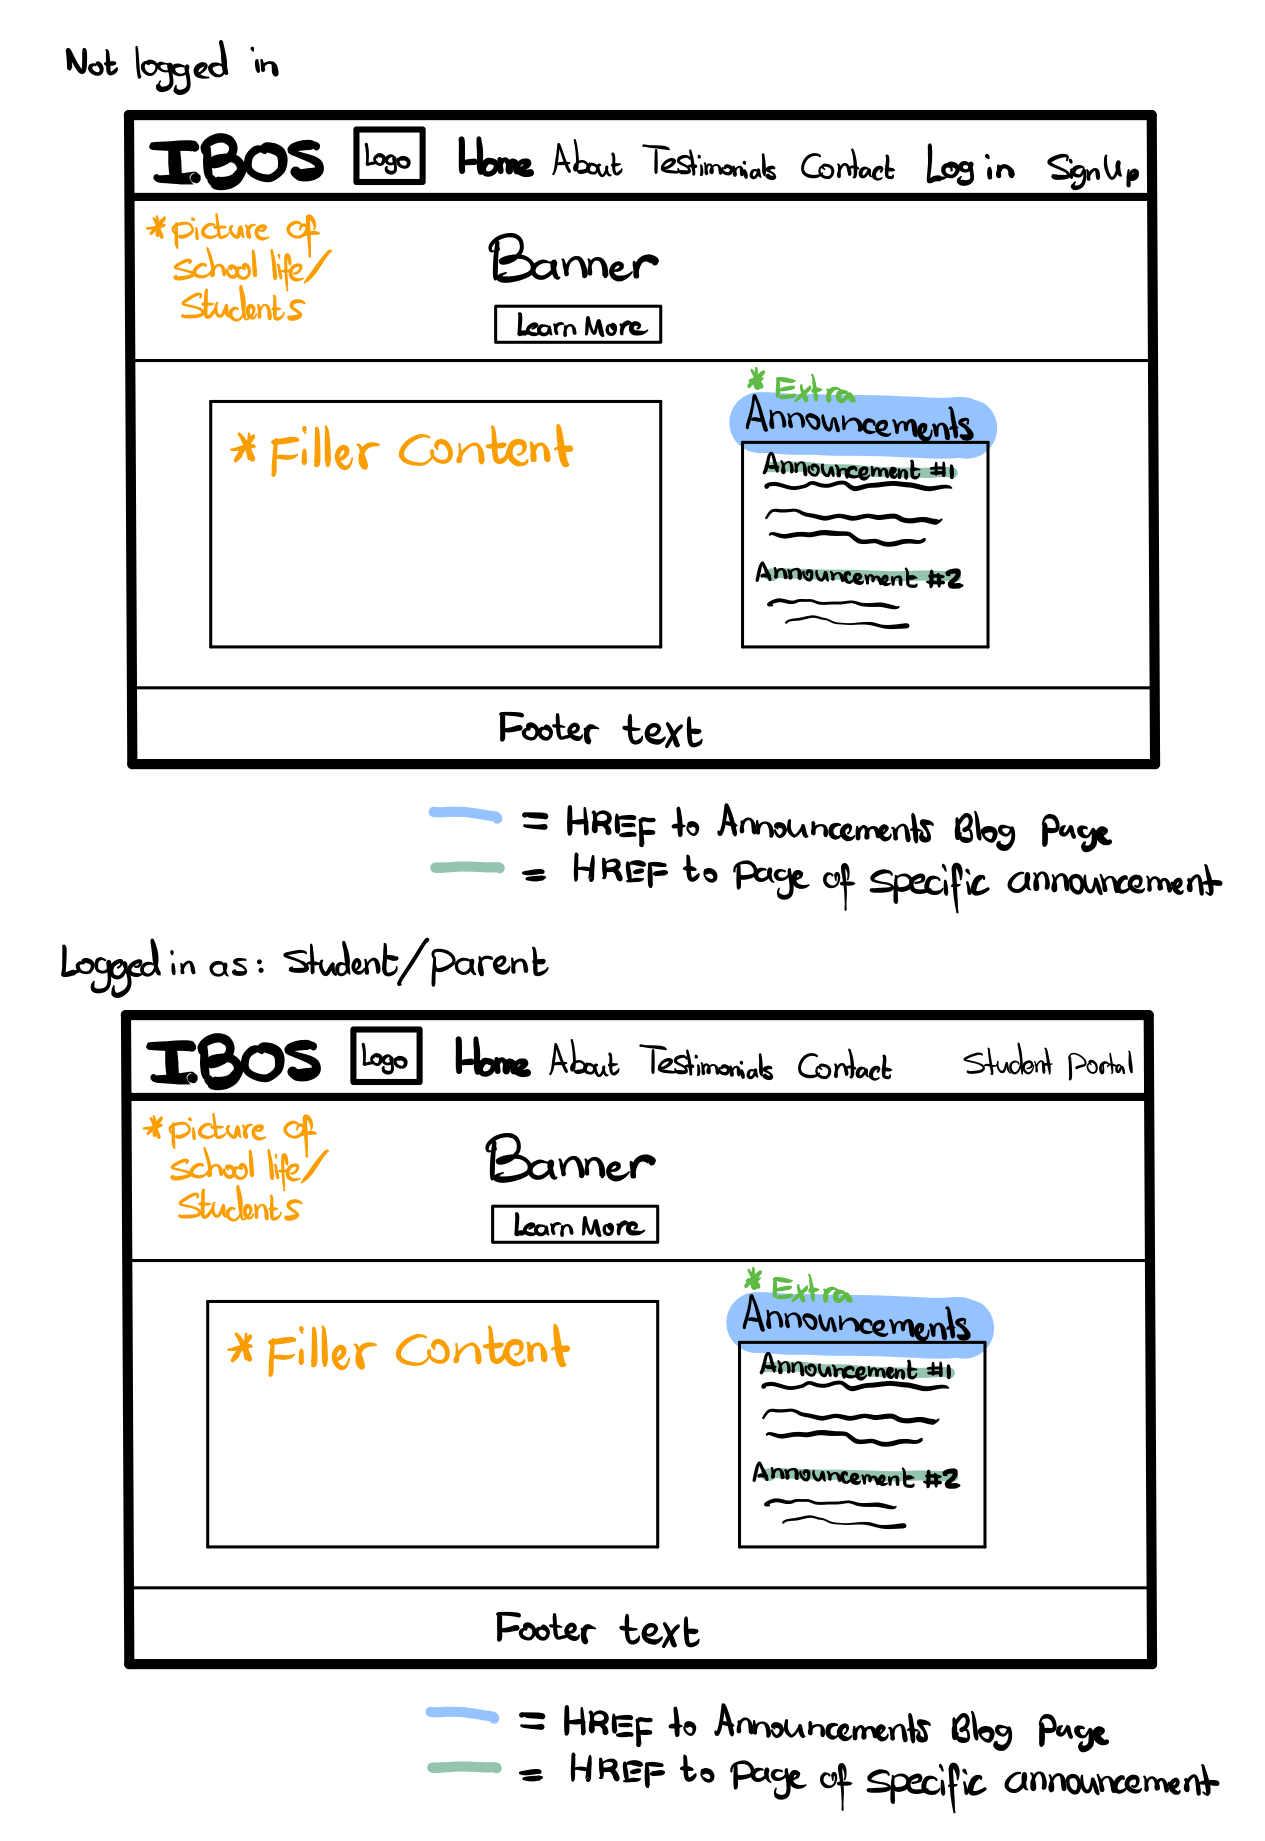 Not logged in
I.BOS Logo Home About Testimonials Contact Log in Sign Up
*picture of
school life/
Students
Banner
Learn More
*Filler Content
*Extra
Announcements
Announcement #1
Announcement #2
Footer text
= HREF to Announcements Blog Page
= HREF to Page of specific announcement
Logged in as: Student/Parent
I.BOS Logo Home About Testimonials Contact Student Portal
*picture of
school life/
Students
Banner
Learn More
*Filler Content
*Extra
Announcements
Announcement #1
Announcement #2
Footer text
= HREF to Announcements Blog Page
= HREF to Page of specific announcement